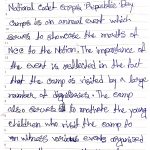 National Cadet Corps Republic Day
Camps is an annual event which
serves to showcase the merits of
NCC to the Nation. The importance of
the event is reflected in the fact
that the camp is visited by a large
number of dignitaries. The camp
also serves to motivate the young
children who visit the camp to
witness various events organised